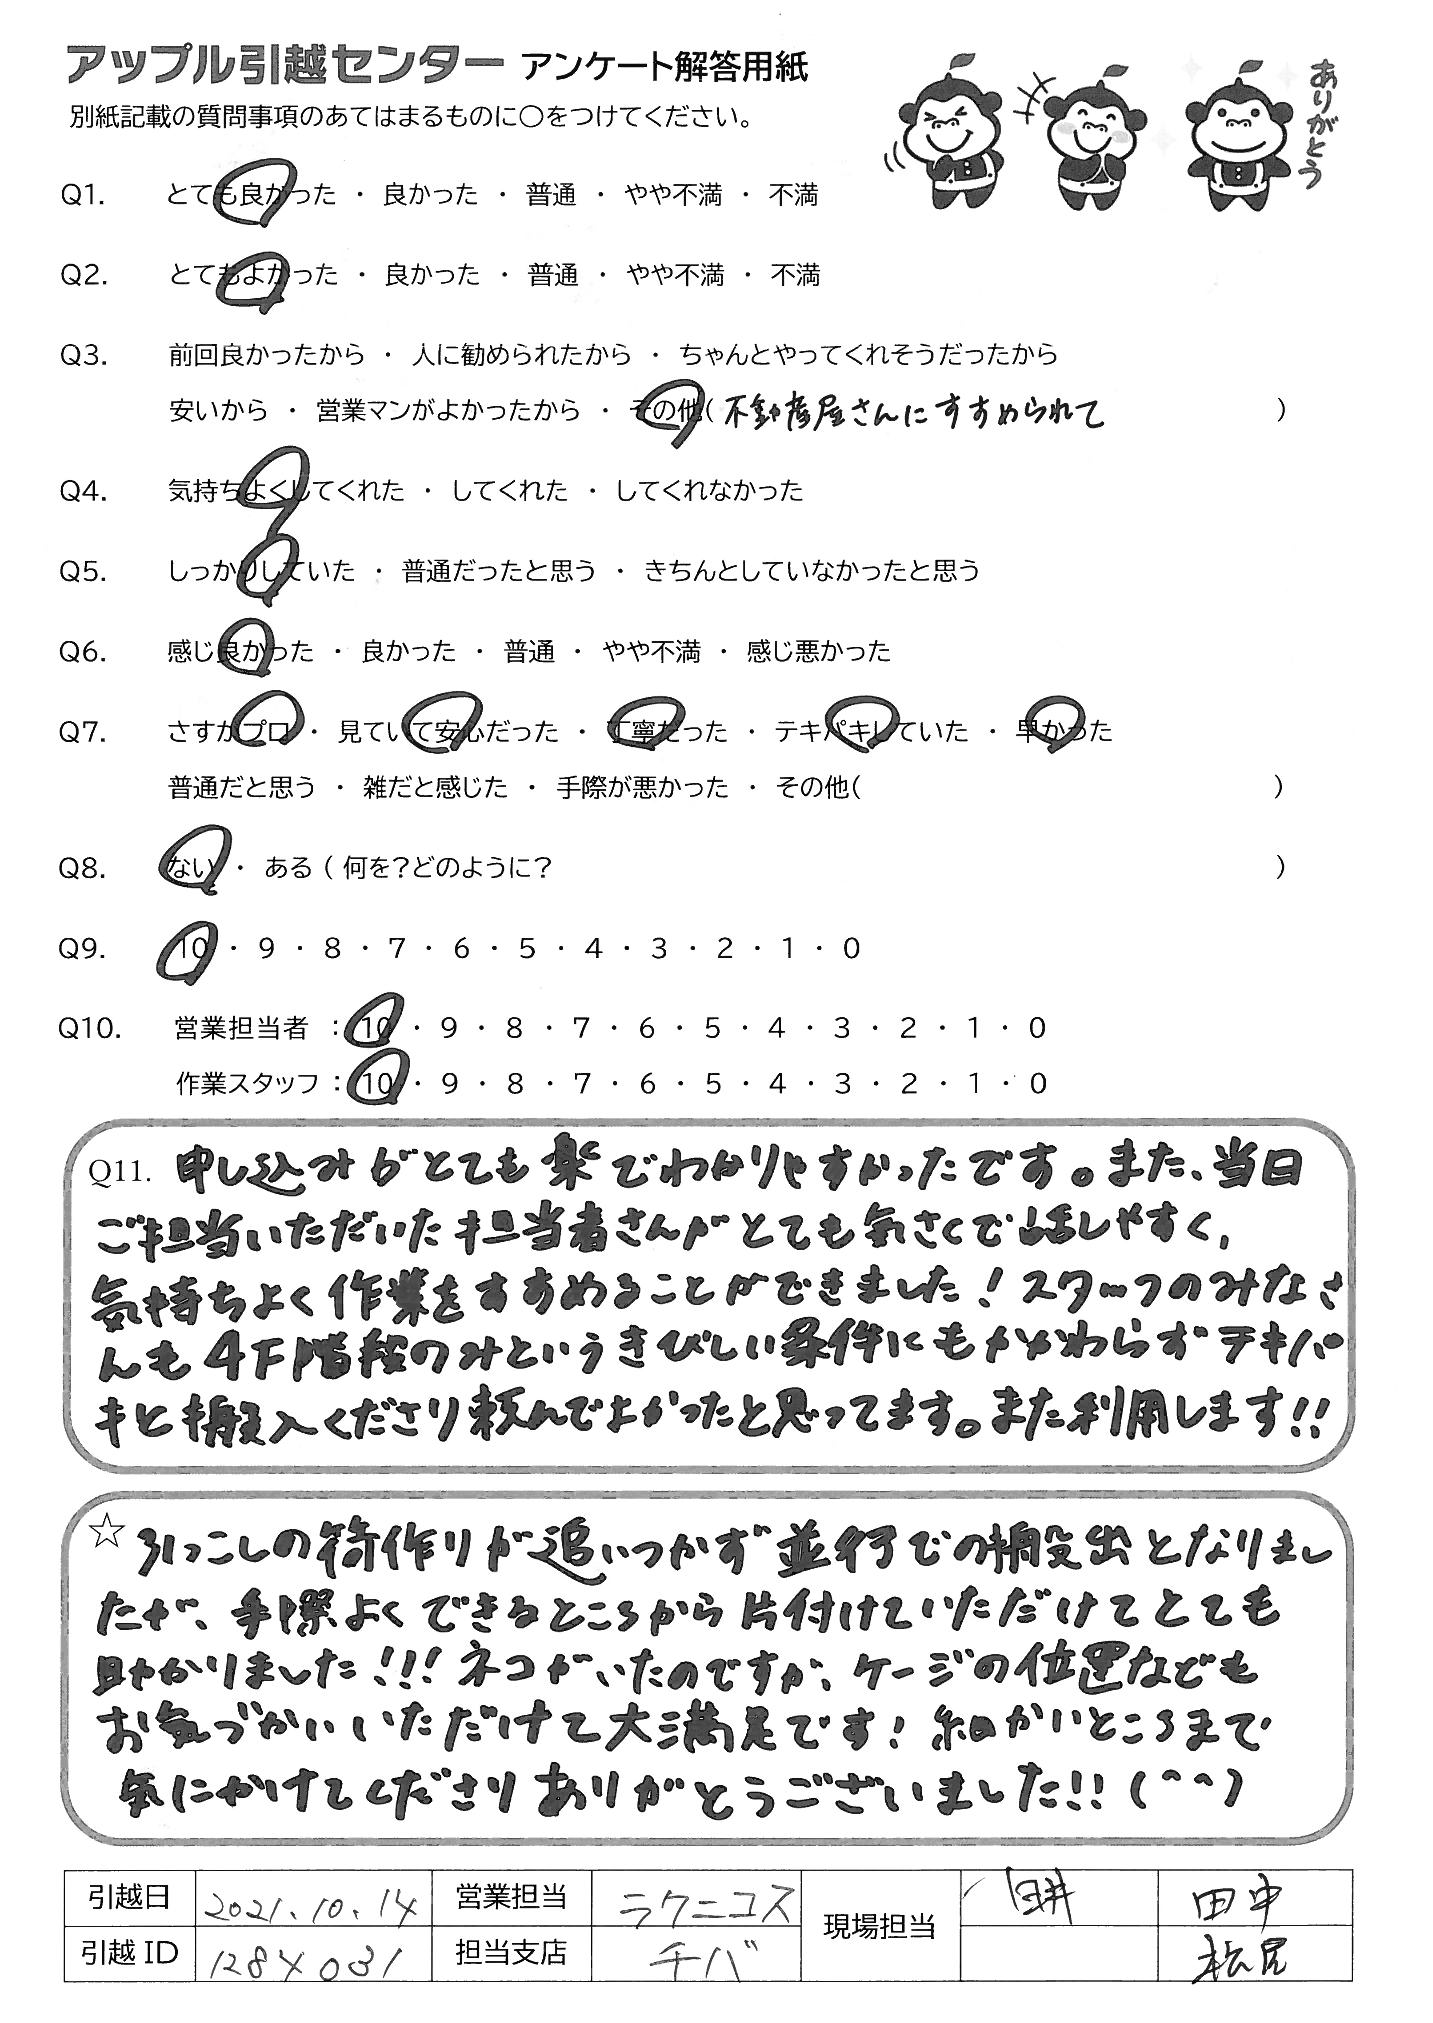 アップル引越センター アンケート解答用紙
ありがとう
別紙記載の質問事項のあてはまるものに○をつけてください。
Q1. とても良かった ・ 良かった ・ 普通 ・ やや不満 ・ 不満
Q2. とてもよかった ・ 良かった ・ 普通 ・ やや不満 ・ 不満
Q3. 前回良かったから ・ 人に勧められたから ・ ちゃんとやってくれそうだったから
安いから ・ 営業マンがよかったから ・ その他( 不動産屋さんにすすめられて )
Q4. 気持ちよくしてくれた ・ してくれた ・ してくれなかった
Q5. しっかりしていた ・ 普通だったと思う ・ きちんとしていなかったと思う
Q6. 感じ良かった ・ 良かった ・ 普通 ・ やや不満 ・ 感じ悪かった
Q7. さすがプロ ・ 見ていて安心だった ・ 丁寧だった ・ テキパキしていた ・ 早かった
普通だと思う ・ 雑だと感じた ・ 手際が悪かった ・ その他( )
Q8. ない ・ ある ( 何を?どのように? )
Q9. 10 ・ 9 ・ 8 ・ 7 ・ 6 ・ 5 ・ 4 ・ 3 ・ 2 ・ 1 ・ 0
Q10. 営業担当者 : 10 ・ 9 ・ 8 ・ 7 ・ 6 ・ 5 ・ 4 ・ 3 ・ 2 ・ 1 ・ 0
作業スタッフ : 10 ・ 9 ・ 8 ・ 7 ・ 6 ・ 5 ・ 4 ・ 3 ・ 2 ・ 1 ・ 0
Q11. 申し込みがとても楽でわかりやすかったです。また、当日
ご担当いただいた担当者さんがとても気さくで話しやすく,
気持ちよく作業をすすめることができました!スタッフのみなさ
んも4F階段のみというきびしい条件にもかかわらずテキパ
キと搬入くださり頼んでよかったと思ってます。また利用します!!
☆ 引っこしの荷作りが追いつかず並行での搬出となりまし
たが、手際よくできるところから片付けていただけてとても
助かりました!!!ネコがいたのですが、ケージの位置なども
お気づかいいただけて大満足です!細かいところまで
気にかけてくださりありがとうございました!!(^^)
引越日 2021.10.14 営業担当 ラクニコス 現場担当 田中
引越ID 1284031 担当支店 チバ 松尾